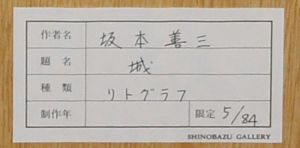 作者名 坂本善三
題名 城
種類 リトグラフ
制作年 限定 5/84
SHINOBAZU GALLERY